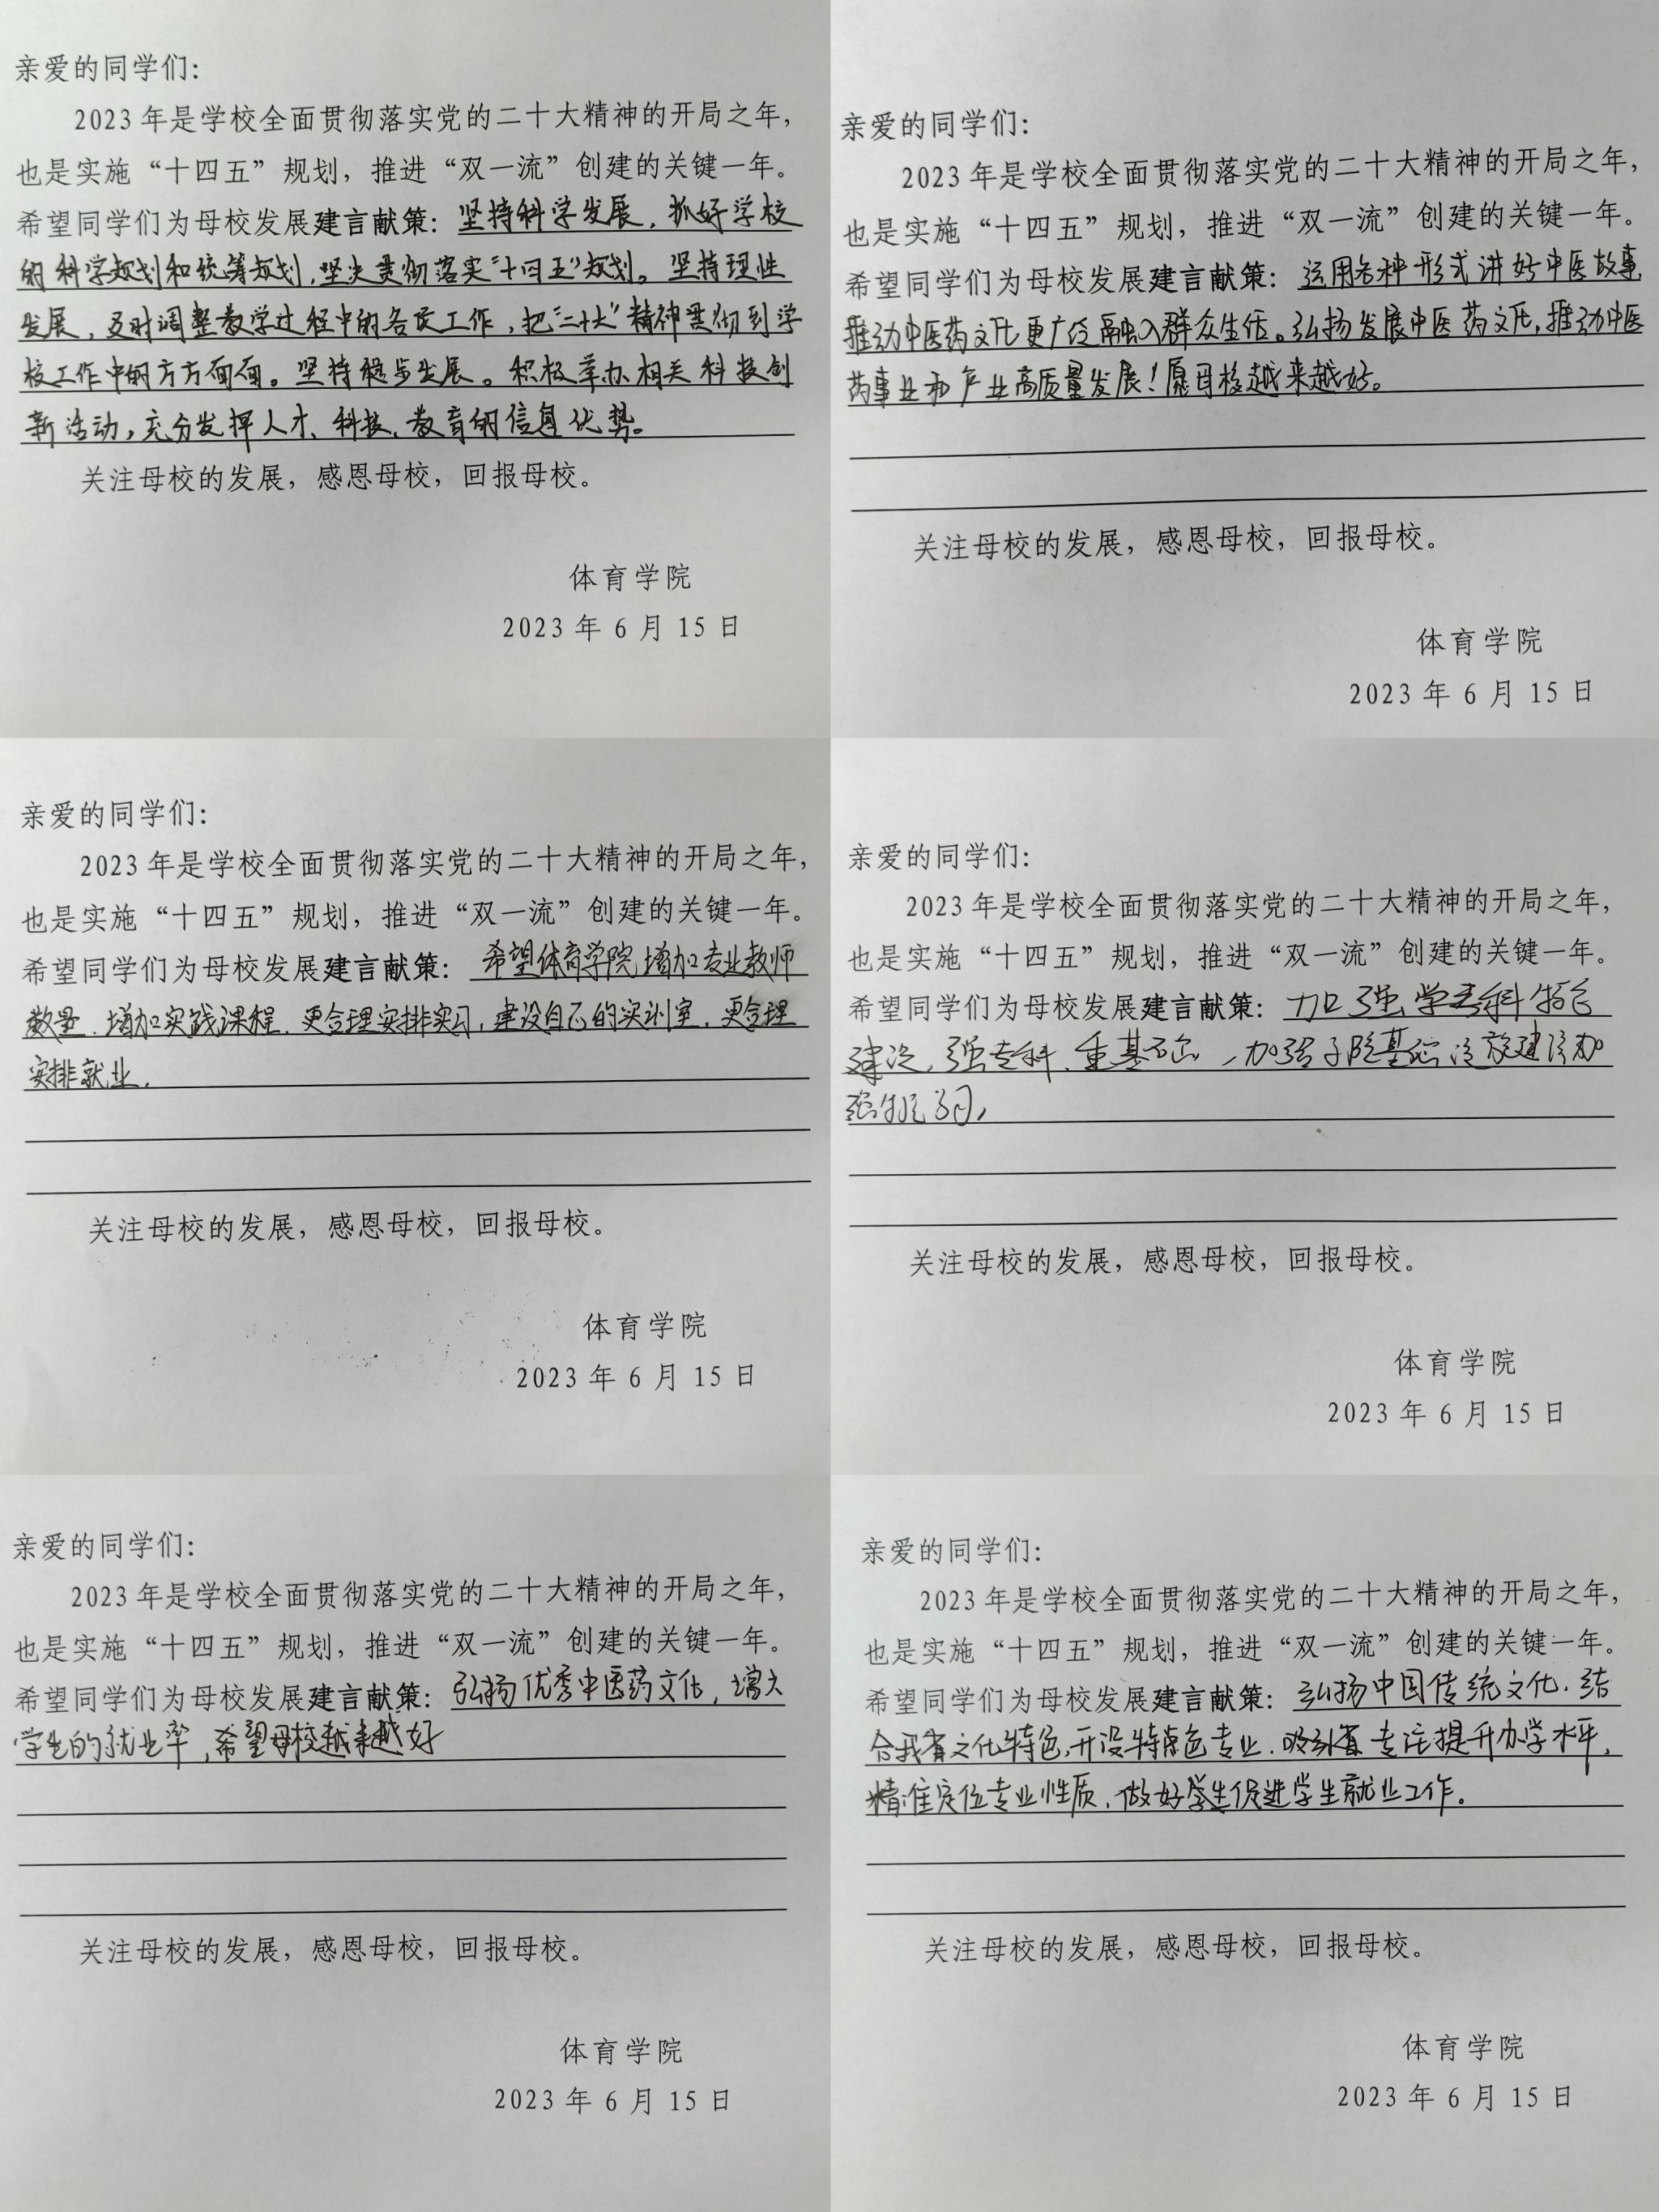 亲爱的同学们：
2023年是学校全面贯彻落实党的二十大精神的开局之年，
也是实施“十四五”规划，推进“双一流”创建的关键一年。
希望同学们为母校发展建言献策：坚持科学发展，抓好学校
的科学规划和统筹规划，坚决贯彻落实“十四五”规划。坚持理性
发展，及时调整教学过程中的各项工作，把“二十大”精神贯彻到学
校工作中的方方面面。坚持稳步发展。积极举办相关科技创
新活动，充分发挥人才、科技、教育的信息优势。
关注母校的发展，感恩母校，回报母校。
体育学院
2023年6月15日
亲爱的同学们：
2023年是学校全面贯彻落实党的二十大精神的开局之年，
也是实施“十四五”规划，推进“双一流”创建的关键一年。
希望同学们为母校发展建言献策：运用各种形式讲好中医故事
推动中医药文化更广泛融入群众生活。弘扬发展中医药文化，推动中医
药事业和产业高质量发展！愿母校越来越好。
关注母校的发展，感恩母校，回报母校。
体育学院
2023年6月15日
亲爱的同学们：
2023年是学校全面贯彻落实党的二十大精神的开局之年，
也是实施“十四五”规划，推进“双一流”创建的关键一年。
希望同学们为母校发展建言献策：希望体育学院增加专业教师
数量，增加实践课程，更合理安排实习，建设自己的实训室，更合理
安排就业，
关注母校的发展，感恩母校，回报母校。
体育学院
2023年6月15日
亲爱的同学们：
2023年是学校全面贯彻落实党的二十大精神的开局之年，
也是实施“十四五”规划，推进“双一流”创建的关键一年。
希望同学们为母校发展建言献策：加强学科特色
建设，强专科，重基础，加强学院基础设施建设
关注母校的发展，感恩母校，回报母校。
体育学院
2023年6月15日
亲爱的同学们：
2023年是学校全面贯彻落实党的二十大精神的开局之年，
也是实施“十四五”规划，推进“双一流”创建的关键一年。
希望同学们为母校发展建言献策：弘扬优秀中医药文化，增大
学生的就业率，希望母校越来越好
关注母校的发展，感恩母校，回报母校。
体育学院
2023年6月15日
亲爱的同学们：
2023年是学校全面贯彻落实党的二十大精神的开局之年，
也是实施“十四五”规划，推进“双一流”创建的关键一年。
希望同学们为母校发展建言献策：弘扬中国传统文化，结
合我省文化特色，开设特色专业，专注提升办学水平，
精准定位专业性质，做好学生促进学生就业工作。
关注母校的发展，感恩母校，回报母校。
体育学院
2023年6月15日